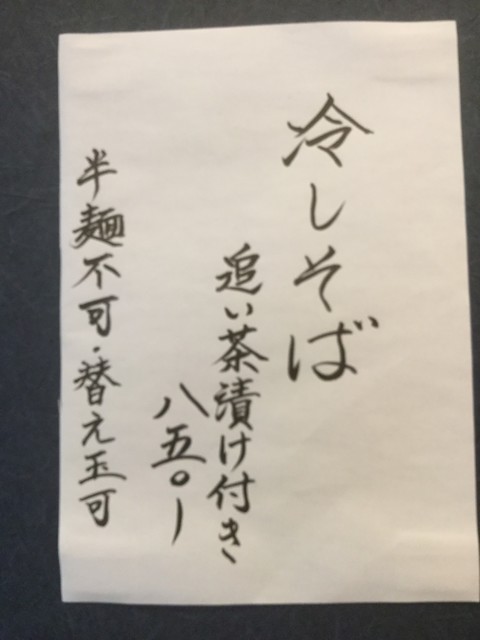 冷しそば
追い茶漬け付き
八五〇ー
半麺不可・替え玉可